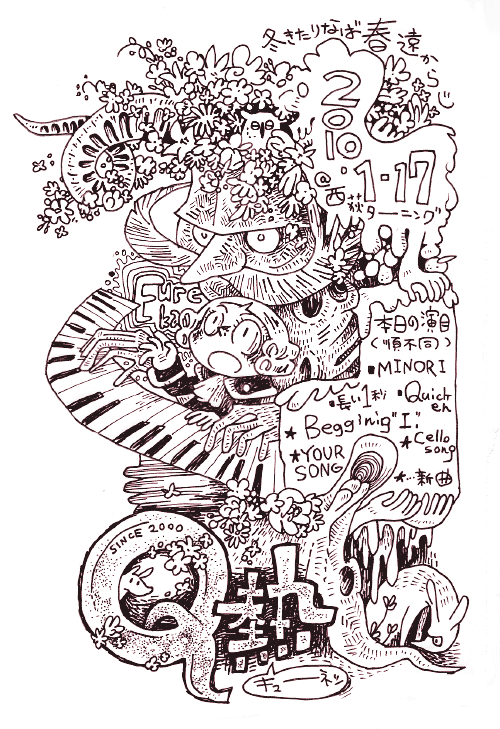 冬きたりなば春遠からじ
2010
1・17
@西荻ターニング
Eure
kao
本日の演目
(順不同)
・MINORI
・長い1秒
・Quick
en
★Begginig "I"
★Cello
song
★YOUR
SONG
★…新曲
SINCE 2000
Q熱
キューネツ